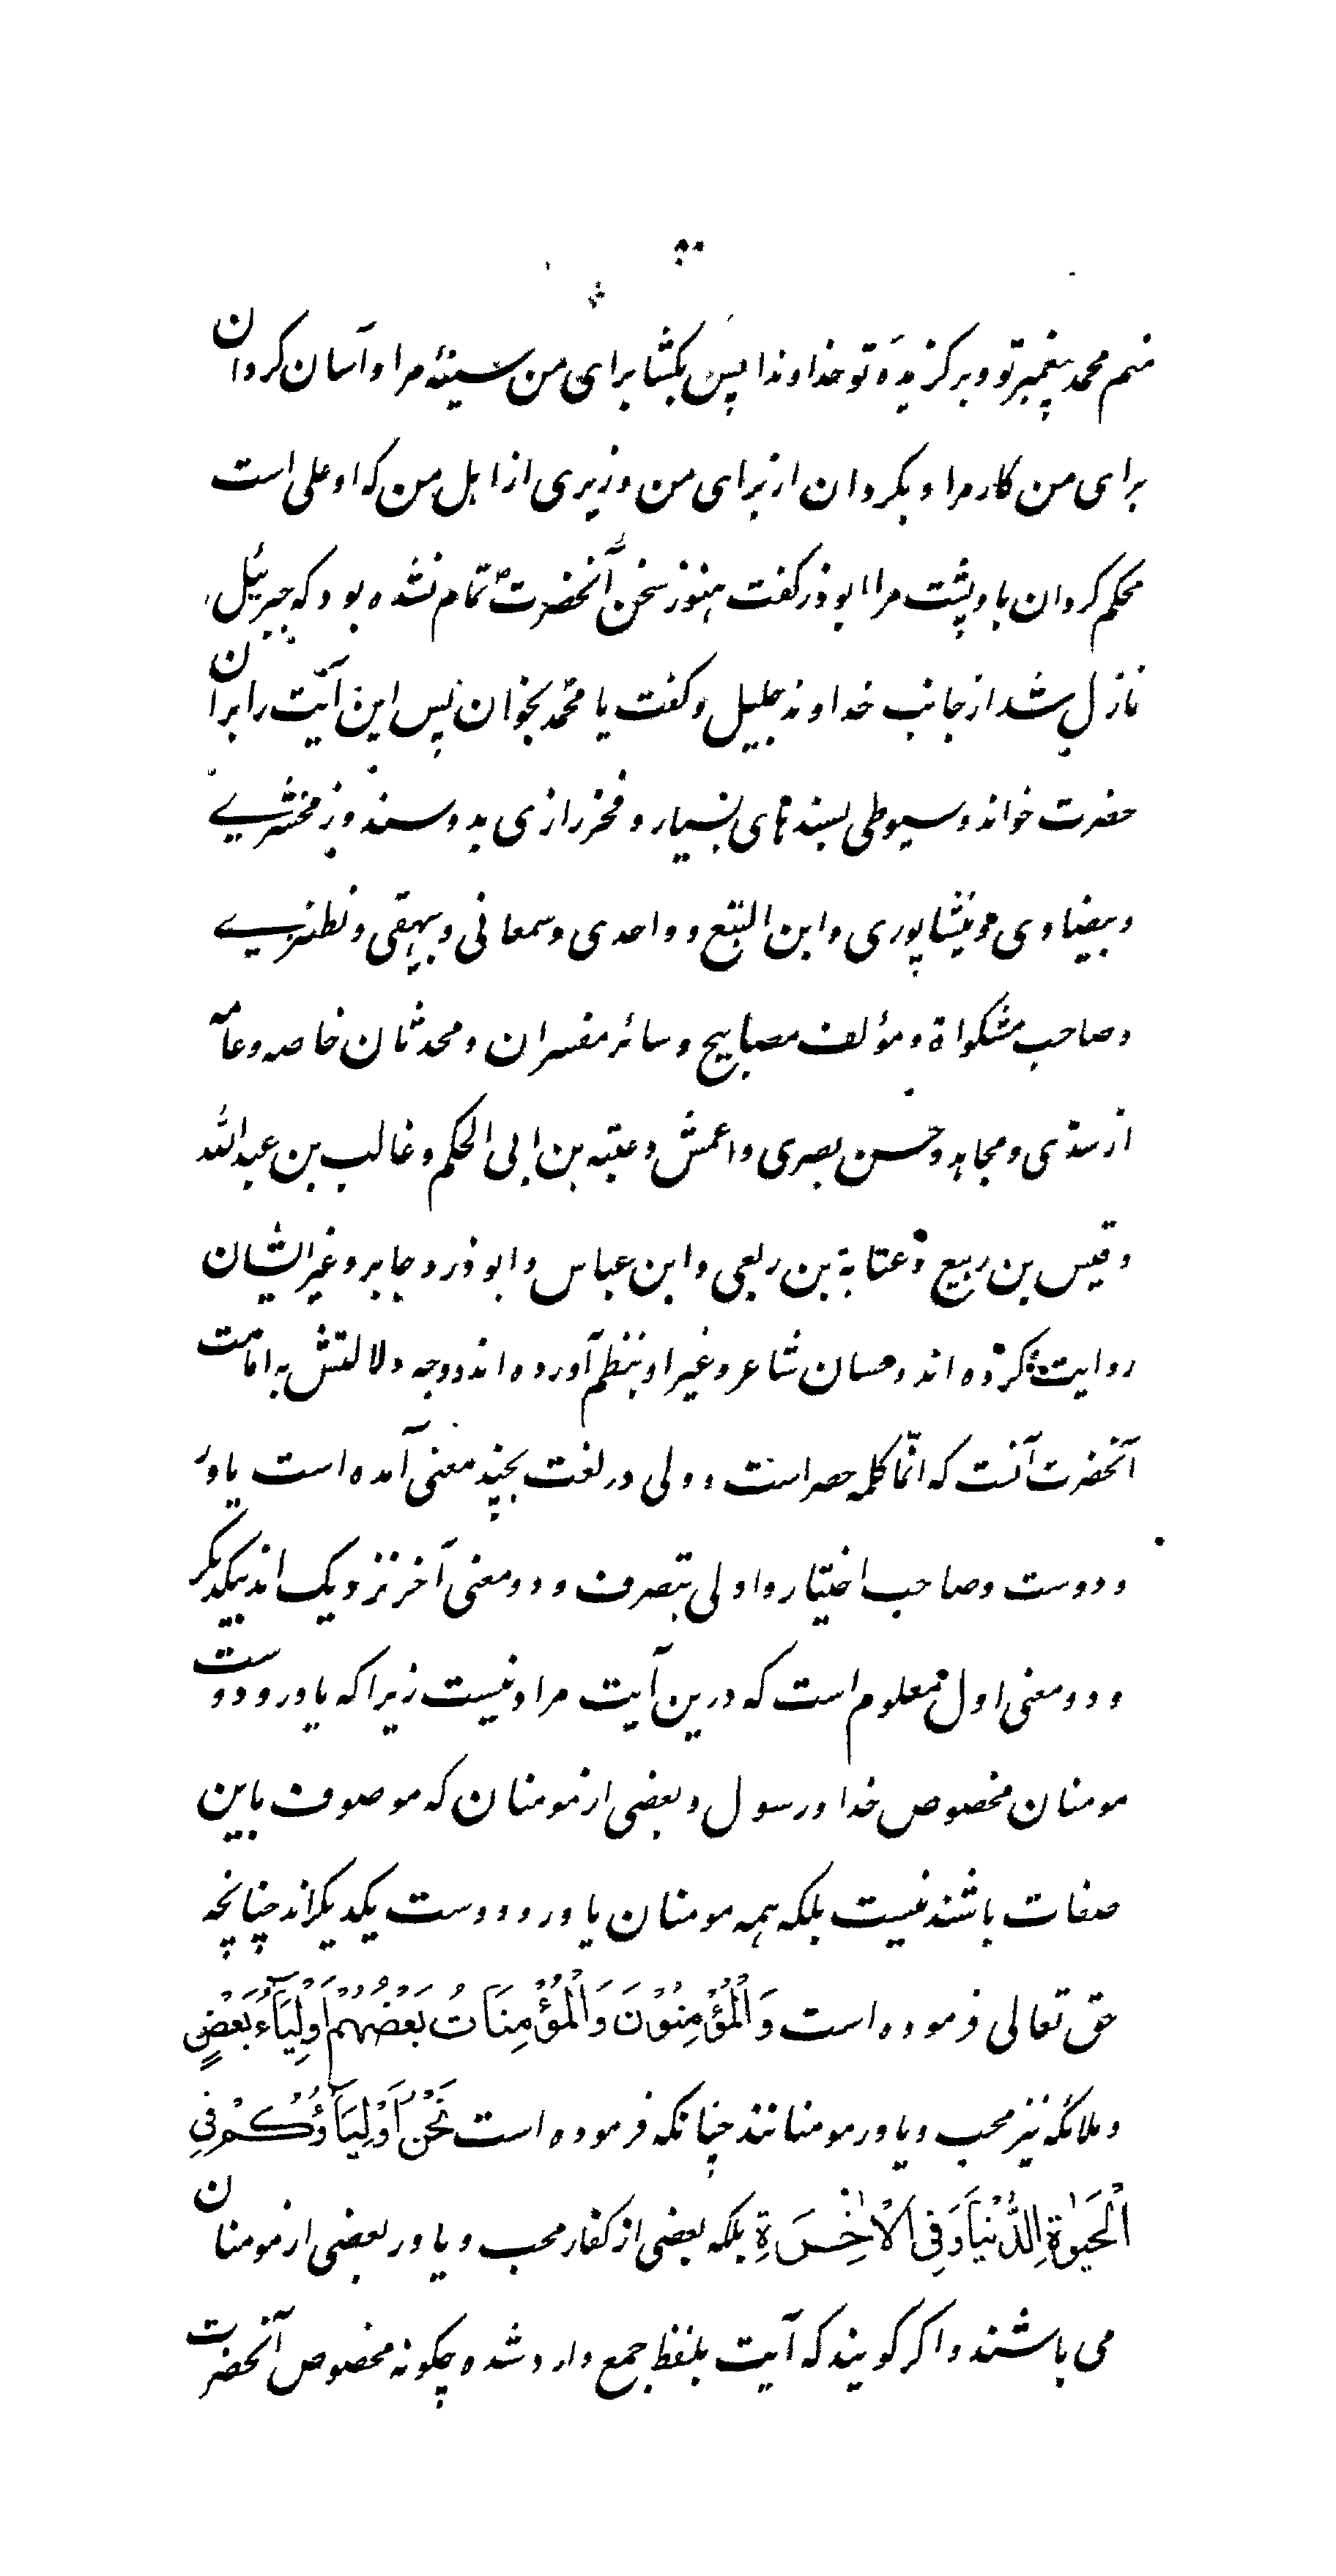 منم محمد پیغمبر تو و برگزیدهٔ تو خداوندا پس بگشا برای من سینهٔ مرا و آسان گردان
برای من کار مرا و بگردان از برای من وزیری از اهل من که او علی است
محکم گردان باو پشت مرا ابوذر گفت هنوز سخن آنحضرت تمام نشده بود که جبرئیل
نازل شد از جانب خداوند جلیل و گفت یا محمد بخوان پس این آیت را بران
حضرت خواند و سیوطی بسندهای بسیار و فخر رازی بدو سند و زمخشری
و بیضاوی و نیشاپوری و ابن البتع و واحدی و سمعانی و بیهقی و نطنزی
و صاحب مشکواة و مؤلف مصابیح و سائر مفسران و محدثان خاصه و عامه
از سدّی و مجاهد و حسن بصری و اعمش و عتبه بن ابی الحکم و غالب بن عبدالله
و قیس بن ربیع و عتابة بن ربعی و ابن عباس و ابوذر و جابر و غیر ایشان
روایت کرده اند و حسان شاعر و غیر او بنظم آورده اند و وجه دلالتش به امامت
آنحضرت آنست که انّما کلمه حصر است و ولی در لغت بچند معنی آمده است یاور
و دوست و صاحب اختیار و اولی بتصرف و دو معنی آخر نزدیک اند بیکدیگر
و دو معنی اول معلوم است که درین آیت مراد نیست زیرا که یاور و دوست
مومنان مخصوص خدا و رسول و بعضی از مومنان که موصوف باین
صفات باشند نیست بلکه همه مومنان یاور و دوست یکدیگراند چنانچه
حق تعالی فرموده است وَالْمُؤْمِنُوْنَ وَالْمُؤْمِنَاتُ بَعْضُهُمْ اَوْلِيَآءُ بَعْضٍ
و ملائکه نیز محب و یاور مومنانند چنانکه فرموده است نَحْنُ اَوْلِيَآؤُكُمْ فِی
الْحَيٰوةِ الدُّنْيَا وَفِی الْاٰخِرَةِ بلکه بعضی از کفار محب و یاور بعضی از مومنان
می باشند و اگر گویند که آیت بلفظ جمع وارد شده چگونه مخصوص آنحضرت